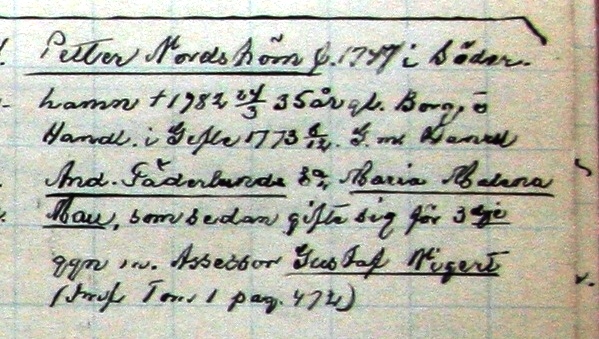 Petter Nordström f. 1747 i Söder-
hamn † 1782 24/3 35 år gl. Borg. o
Handl. i Gefle 1773 6/12. G. m.
And. Söderlunds Maria Malena
Mau, som sedan gifte sig för 3dje
ggn m. Assessor Gustaf Wigert
(Tom 1 pag. 472)